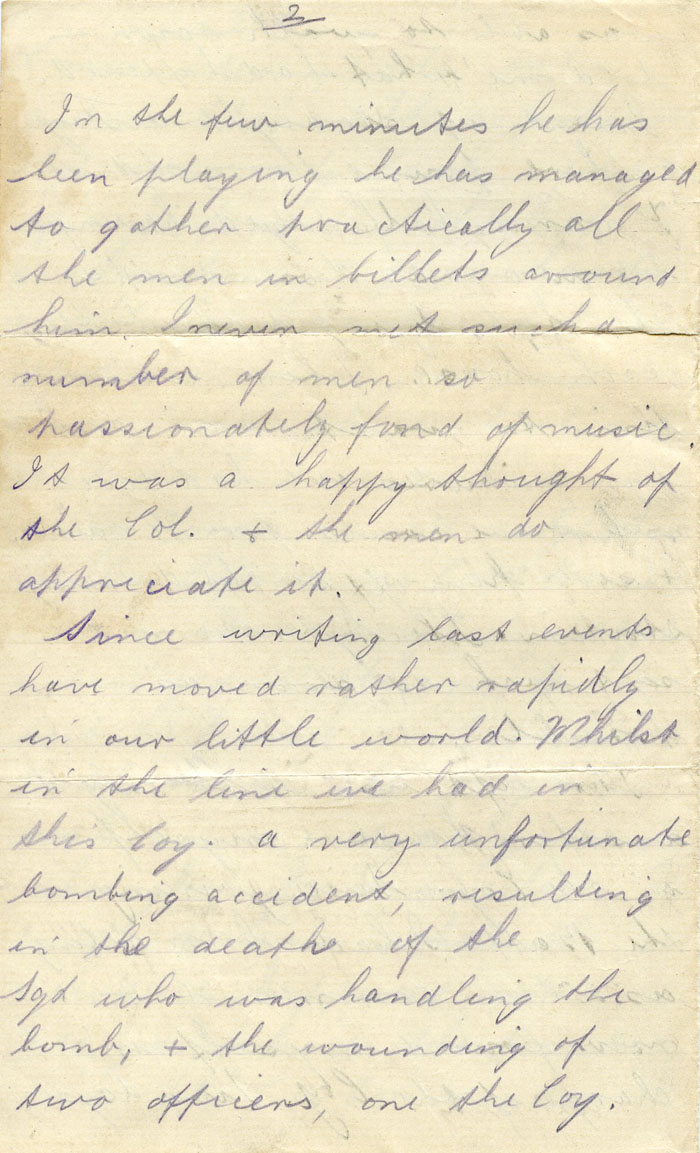 2
In the few minutes he has
been playing he has managed
to gather practically all
the men in billets around
him. I never met such a
number of men so
passionately fond of music.
It was a happy thought of
the Col. + the men do
appreciate it.
Since writing last events
have moved rather rapidly
in our little world. Whilst
in the line we had in
this Coy. a very unfortunate
bombing accident, resulting
in the death of the
Sgt who was handling the
bomb, + the wounding of
two officers, one the Coy.